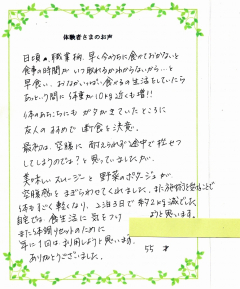 体験者さまのお声
日頃、職業柄、早く今のうちに食べておかないと
食事の時間がいつ取れるかわからないから…と
早食い、おなかいっぱい食べるの生活をしていたら
あっという間に体重が10kg近くも増!!
体のあちこちにもガタがきていたところに
友人のすすめで断食を決意。
最初は、空腹に耐えられず途中で拉せつ
してしまうのでは?と思っていましたが、
美味しいスムージーと野菜のポタージュが
空腹感をまぎらわせてくれました。また
体もすごく軽くなり、2泊3日で約2kg減でした
自宅では食生活に気をつけ
ようと思います。
また体調リセットのために
年に1回は利用しようと思います。
55才
ありがとうございました。